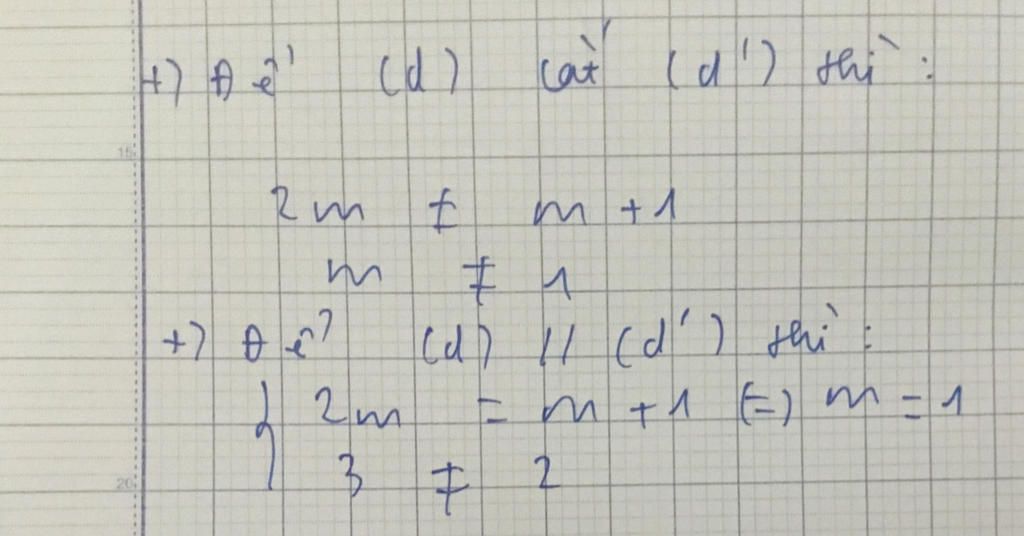 +) Để (d) cắt (d') thì:
15
2m ≠ m + 1
m ≠ 1
+) Để (d) // (d') thì:
{ 2m = m + 1 (=) m = 1
20 3 ≠ 2